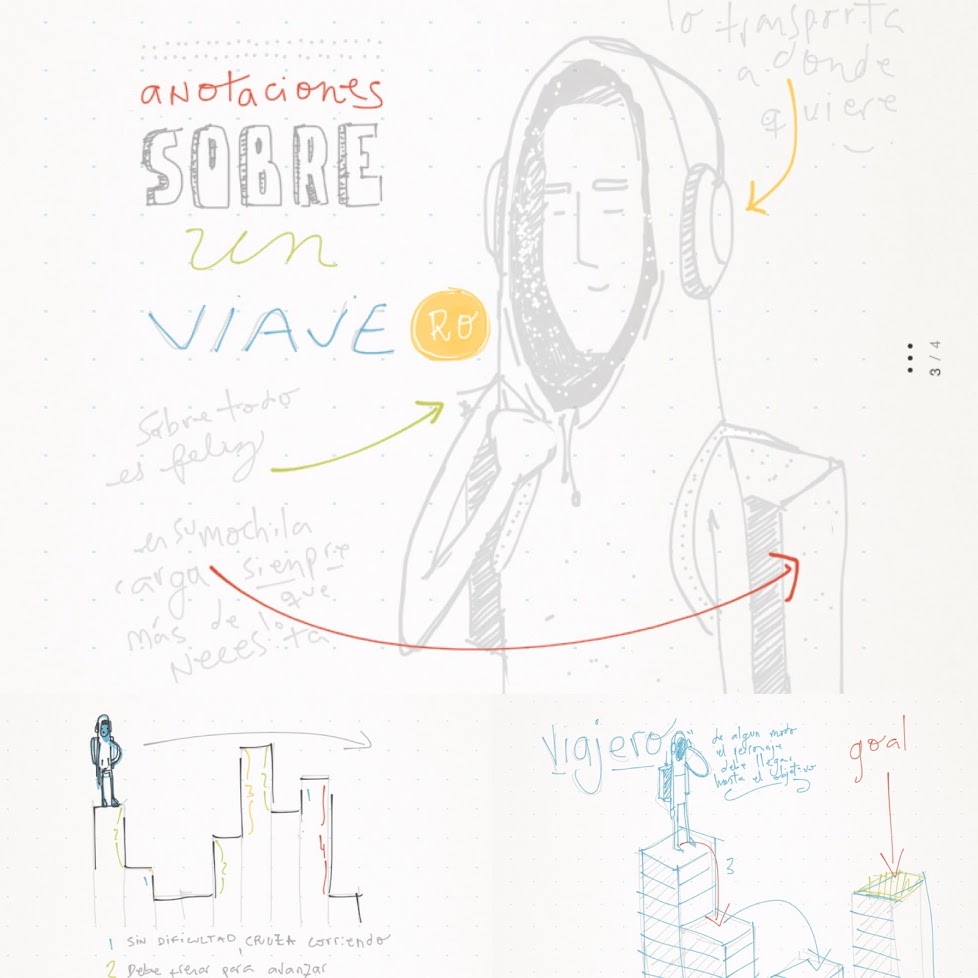 anotaciones
SOBRE
un
VIAJE RO
lo transporta
a donde
quiere
Sobre todo
es feliz
en su mochila
carga siempre
más de lo que
necesita
3 / 4
1 2 3 2 3 2 1 4
1 SIN DIFICULTAD, CRUZA corriendo
2 Debe trepar para avanzar
Viajero
de algun modo
el personaje
debe llegar
hasta el objetivo
goal
3